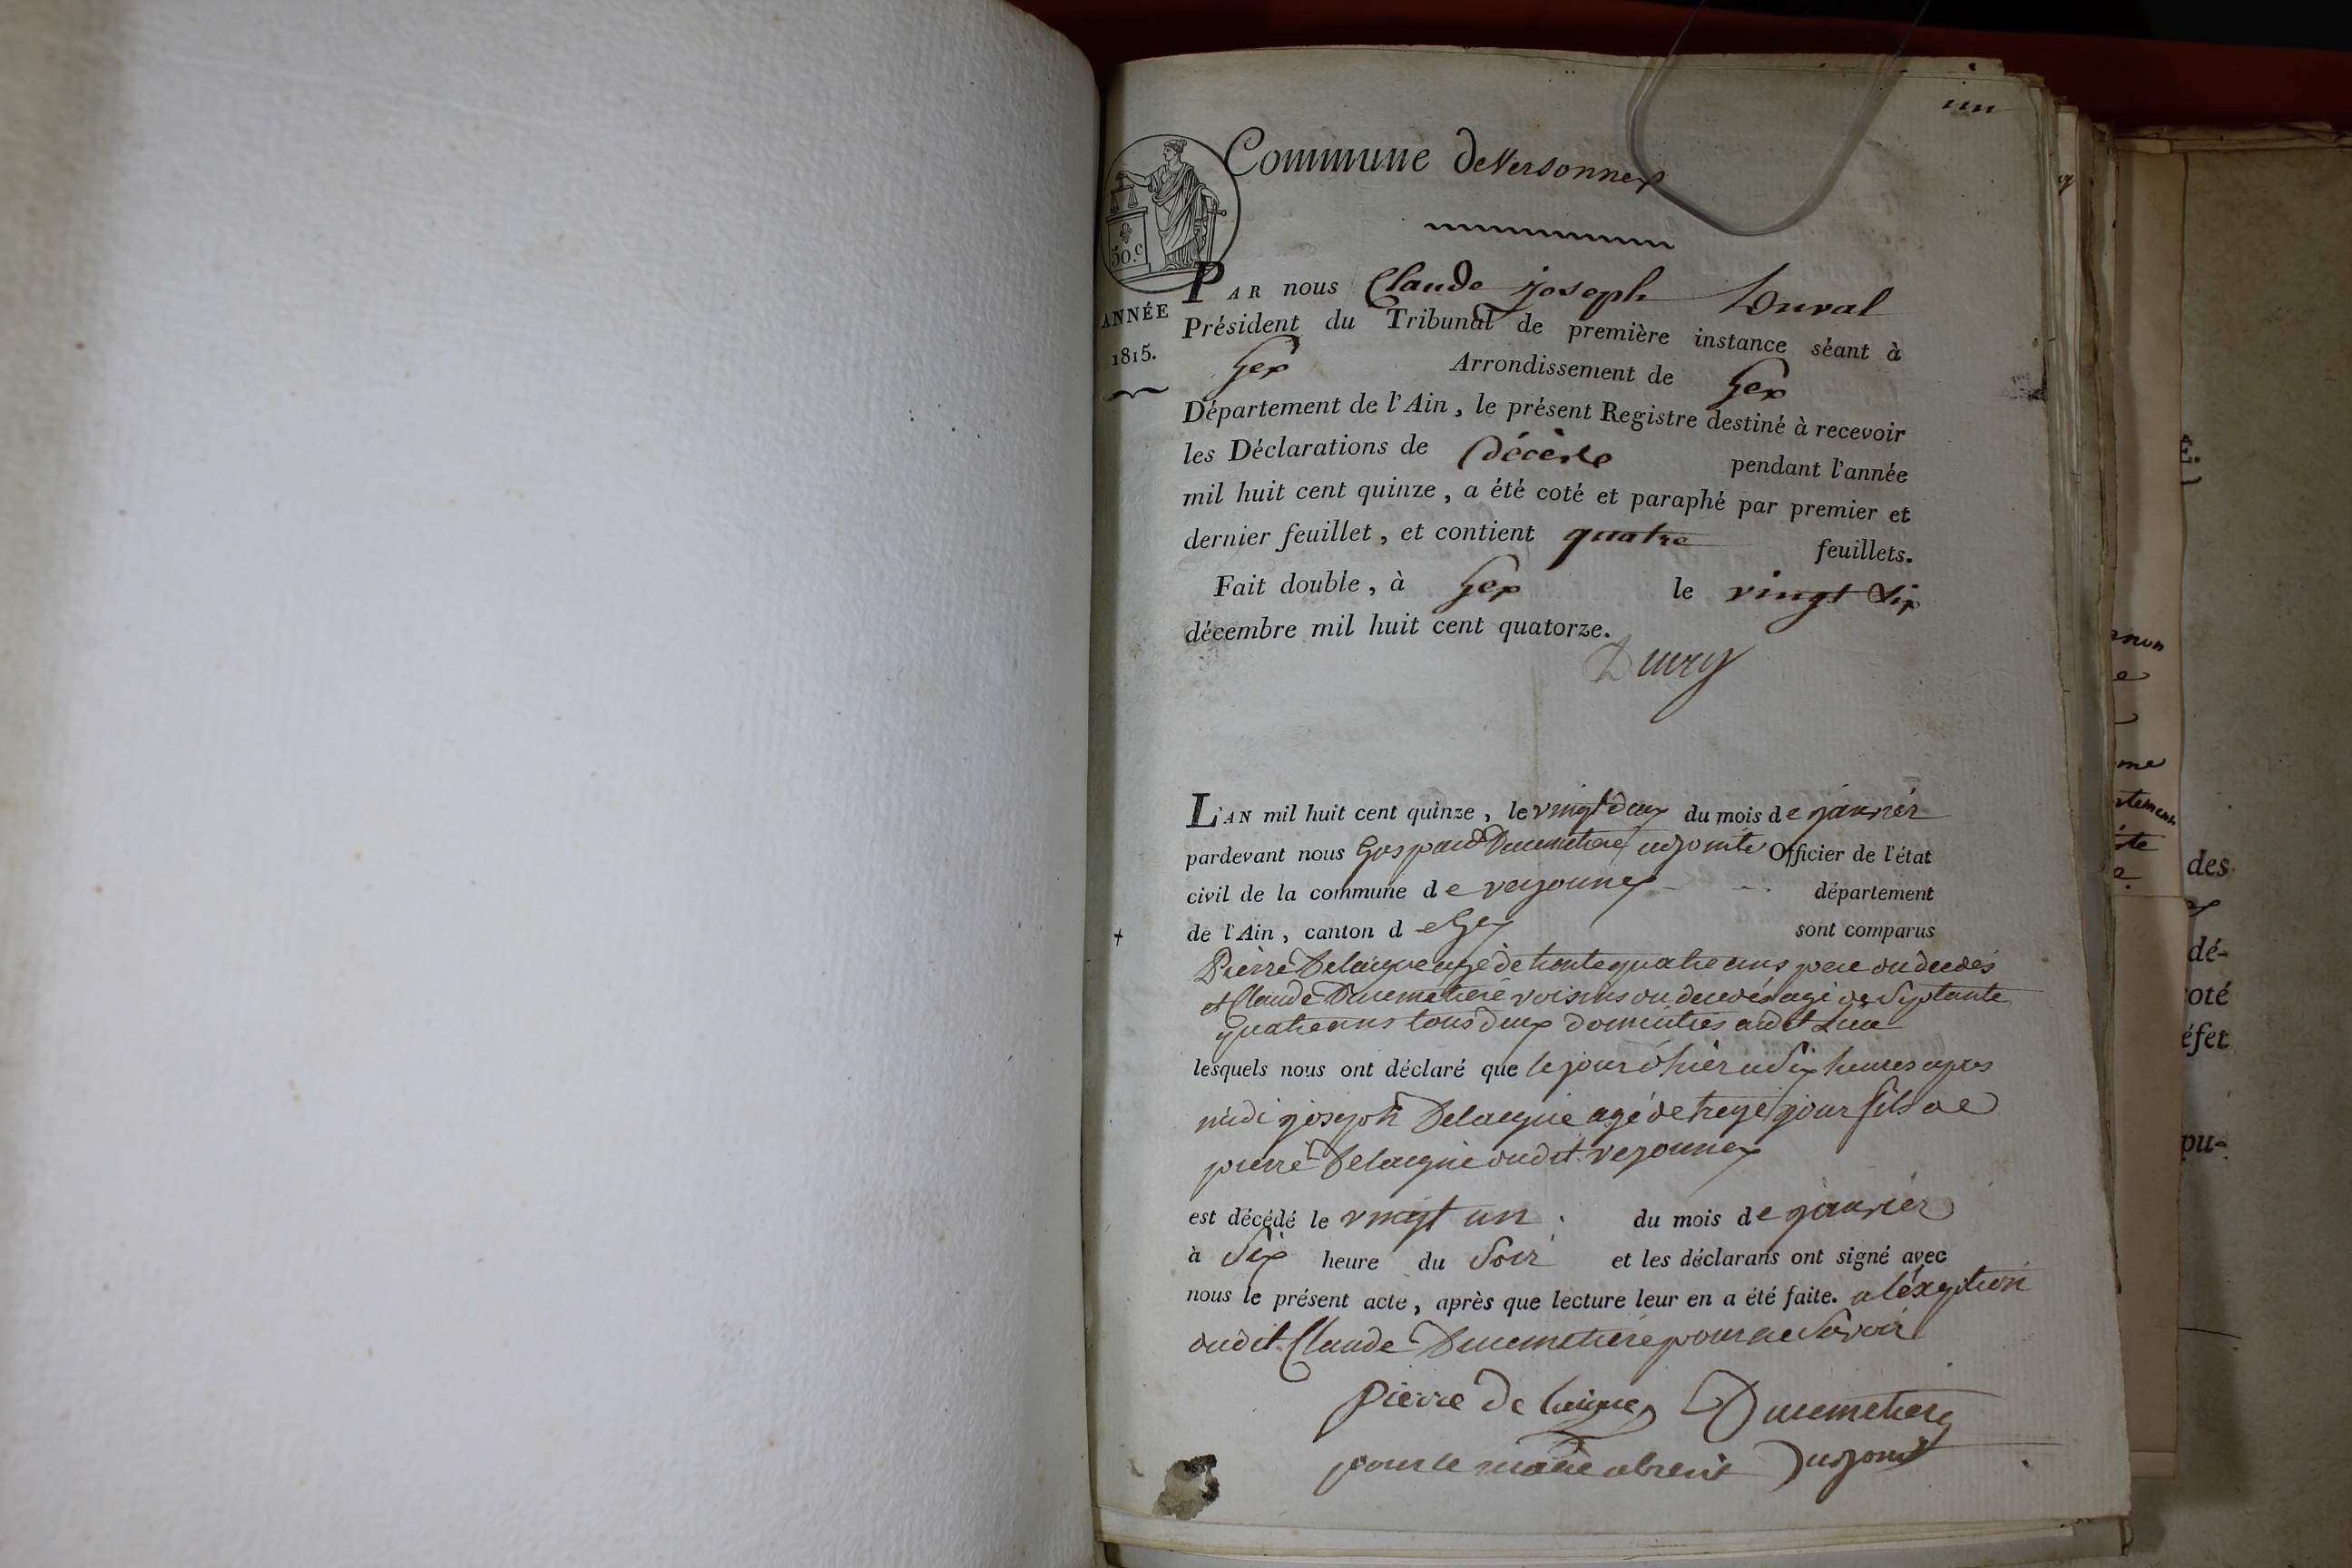 un
Commune de Versonnex
50.c
ANNÉE
1815.
PAR nous Claude joseph Duval
Président du Tribunal de première instance séant à
Gex Arrondissement de Gex
Département de l'Ain, le présent Registre destiné à recevoir
les Déclarations de Décès pendant l'année
mil huit cent quinze, a été coté et paraphé par premier et
dernier feuillet, et contient quatre feuillets.
Fait double, à Gex le vingt Six
décembre mil huit cent quatorze.
L'AN mil huit cent quinze, le vingt deux du mois de janvier
pardevant nous Gaspard Ducimetiere adjointe Officier de l'état
civil de la commune de versonnex département
de l'Ain, canton de Gex sont comparus
Pierre Delaigue agé de trente quatre ans pere du decés
et Claude Ducimetiere voisins du decés agé de Septante
quatre ans tous deux domicilies audit Lieu
lesquels nous ont déclaré que le jour d'hier a Six heures apres
midi joseph Delaigue agé de treze jour fils de
pierre Delaigue dudit versonnex
est décédé le vingt un du mois de janvier
à Six heure du Soir et les déclarans ont signé avec
nous le présent acte, après que lecture leur en a été faite. a l'exeption
dudit Claude Ducimetiere pour ne Savoir
pierre De laigue Ducimetiere
pour le maire absent adjoint
non
e
me
rtement
te
des
dé-
oté
éfet
pu-